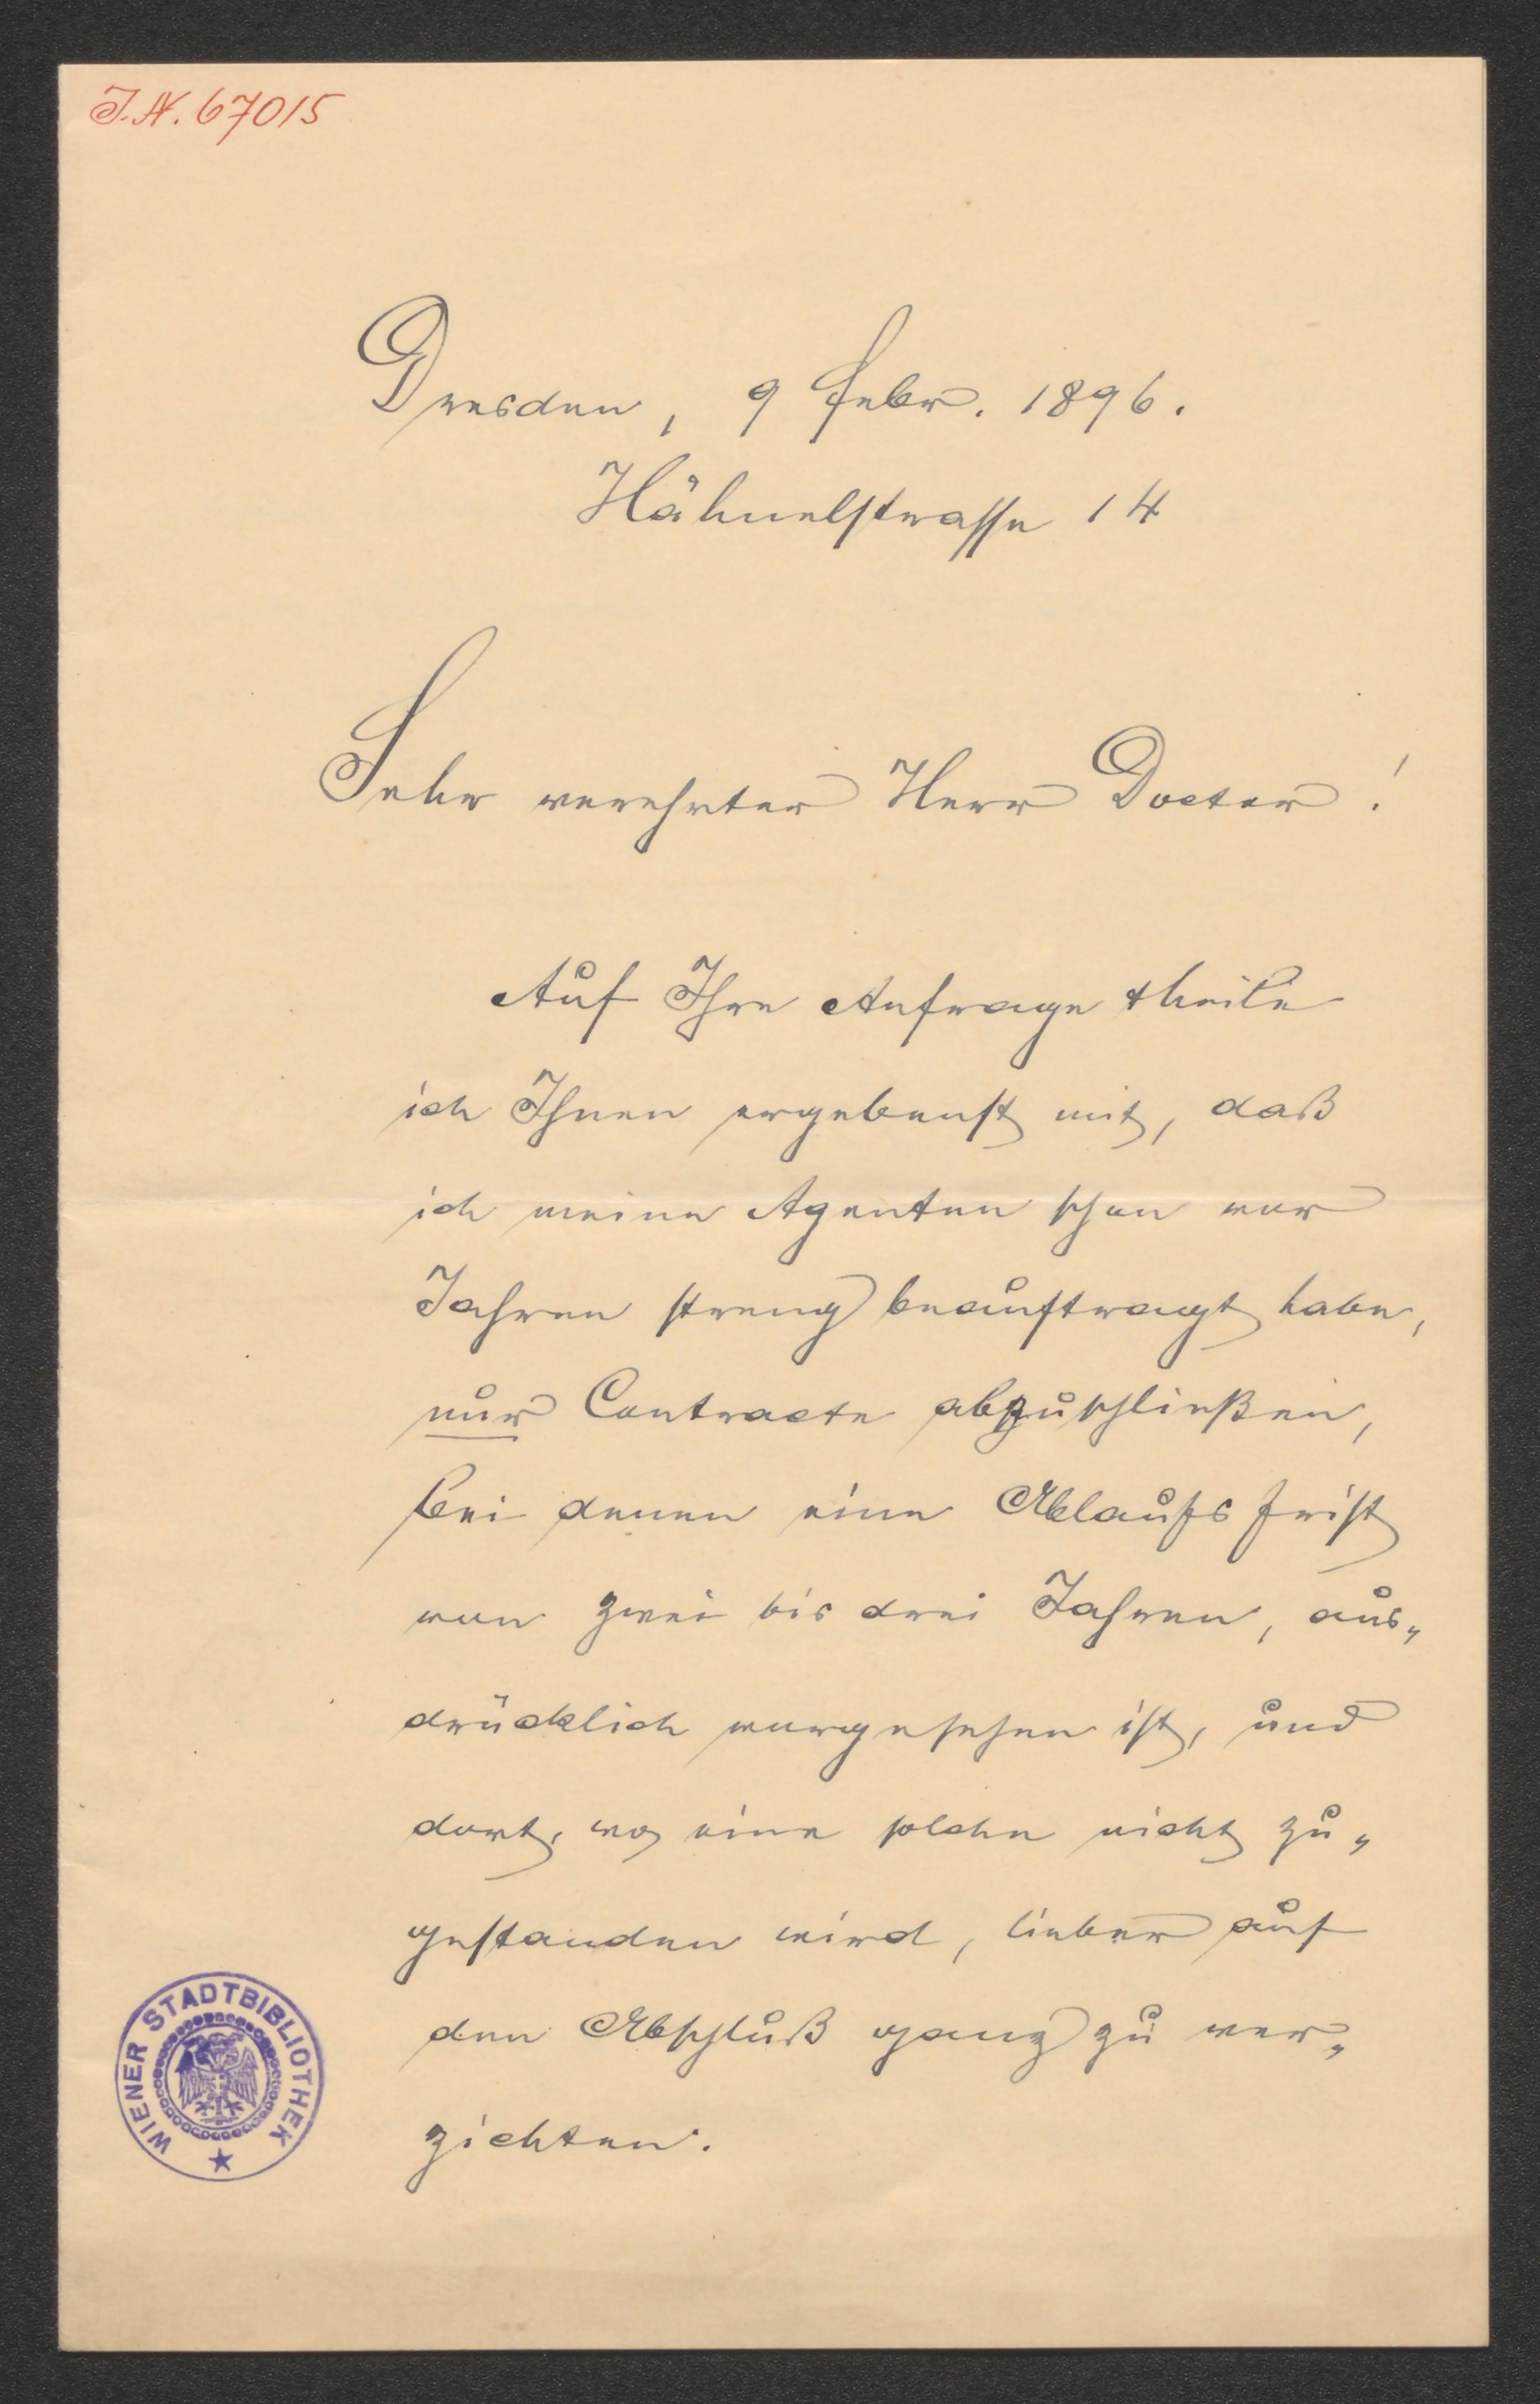 J.N. 67015
Dresden, 9 Febr. 1896.
Hähnelstrasse 14
Sehr verehrter Herr Doctor!
Auf Ihre Anfrage theile
ich Ihnen ergebenst mit, daß
ich meine Agenten schon vor
Jahren streng beauftragt habe,
nur Contracte abzuschließen,
bei denen eine Ablaufsfrist
von zwei bis drei Jahren, aus„
drücklich vorgesehen ist, und
dort, wo eine solche nicht zu„
gestanden wird, lieber auf
den Abschluß ganz zu ver„
zichten.
WIENER STADTBIBLIOTHEK